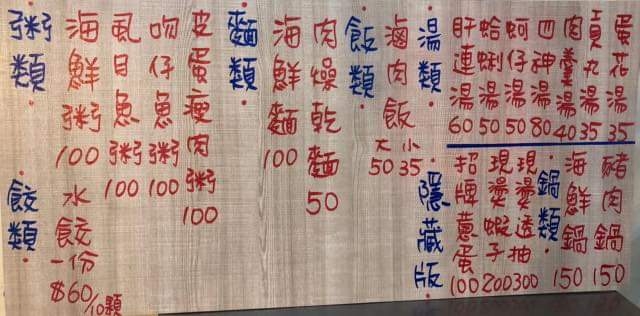 粥類
海鮮粥100
虱目魚粥100
吻仔魚粥100
皮蛋瘦肉粥100
餃類
水餃一份$60/10顆
麵類
海鮮麵100
肉燥乾麵50
飯類
滷肉飯
大50
小35
湯類
肝連湯60
蛤蜊湯50
蚵仔湯50
四神湯80
肉羹湯40
貢丸湯35
蛋花湯35
隱藏版
招牌蔥蛋100
現燙蝦子200
現燙透抽300
鍋類
海鮮鍋150
豬肉鍋150